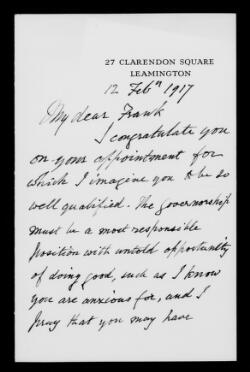 27 CLARENDON SQUARE
LEAMINGTON
12 Feby 1917
My dear Frank
I congratulate you
on your appointment for
which I imagine you to be so
well qualified. The governorship
must be a most responsible
position with untold opportunity
of doing good, such as I know
you are anxious for, and I
pray that you may have